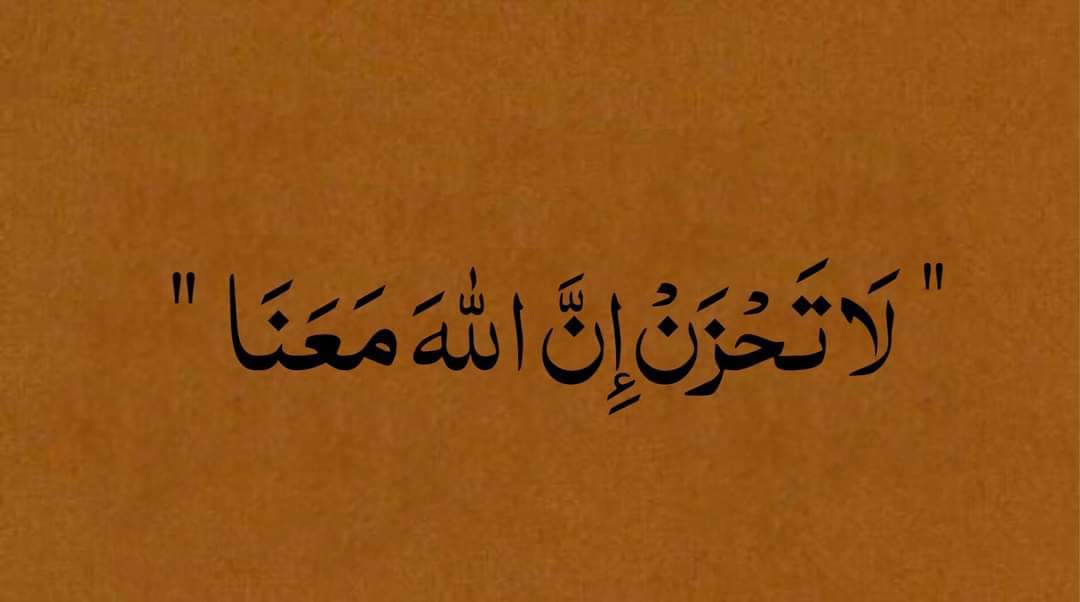 " لَا تَحْزَنْ إِنَّ اللّٰهَ مَعَنَا "